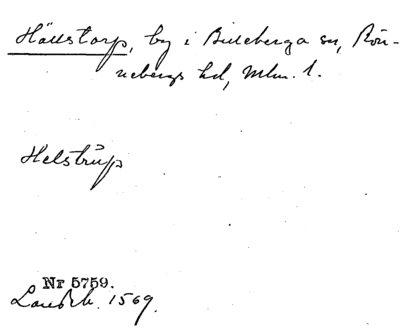 Hällstorp, by i Billeberga sn, Rön-
nebergs hd, Mlm. l.
Helstrup
Nr 5759.
Landsb. 1569.